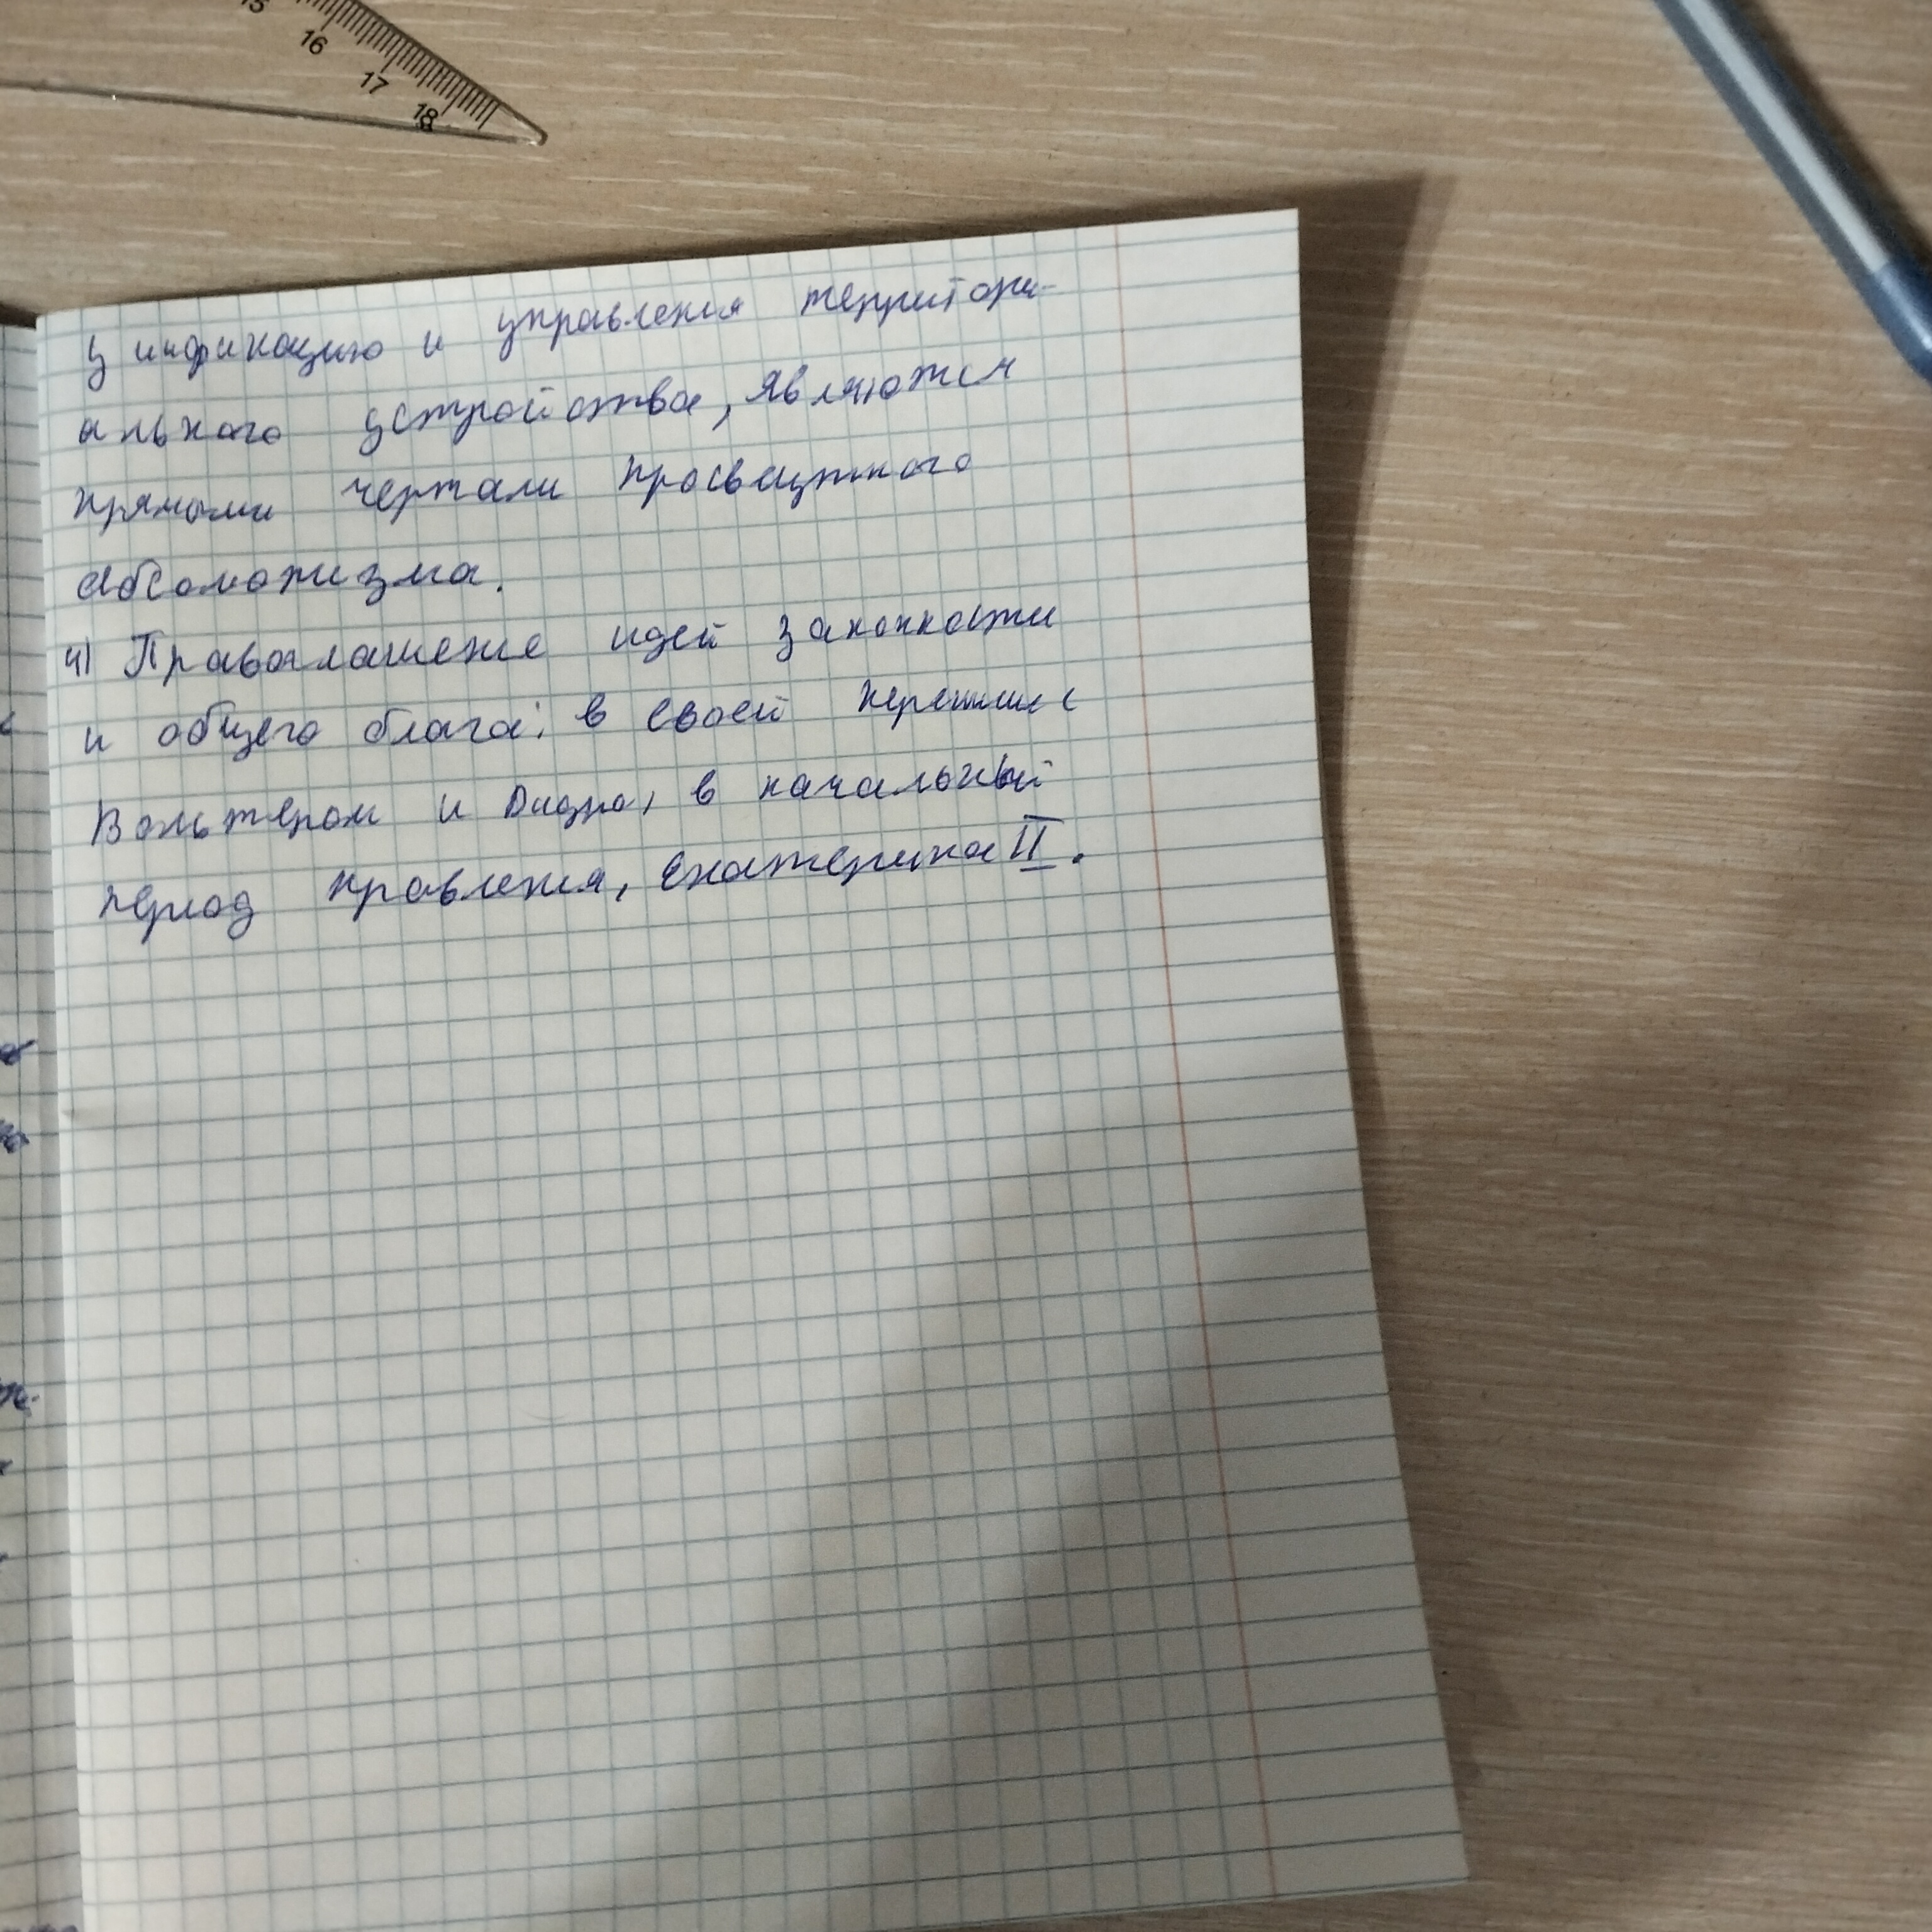 15
16
17
18
унификацию и управления территори-
ального устройства, являются
прямыми чертами просвещенного
абсолютизма.
4) Провозглашение идей законности
и общего блага: в своей переписке с
Вольтером и Дидро, в начальный
период правления, Екатерина II.